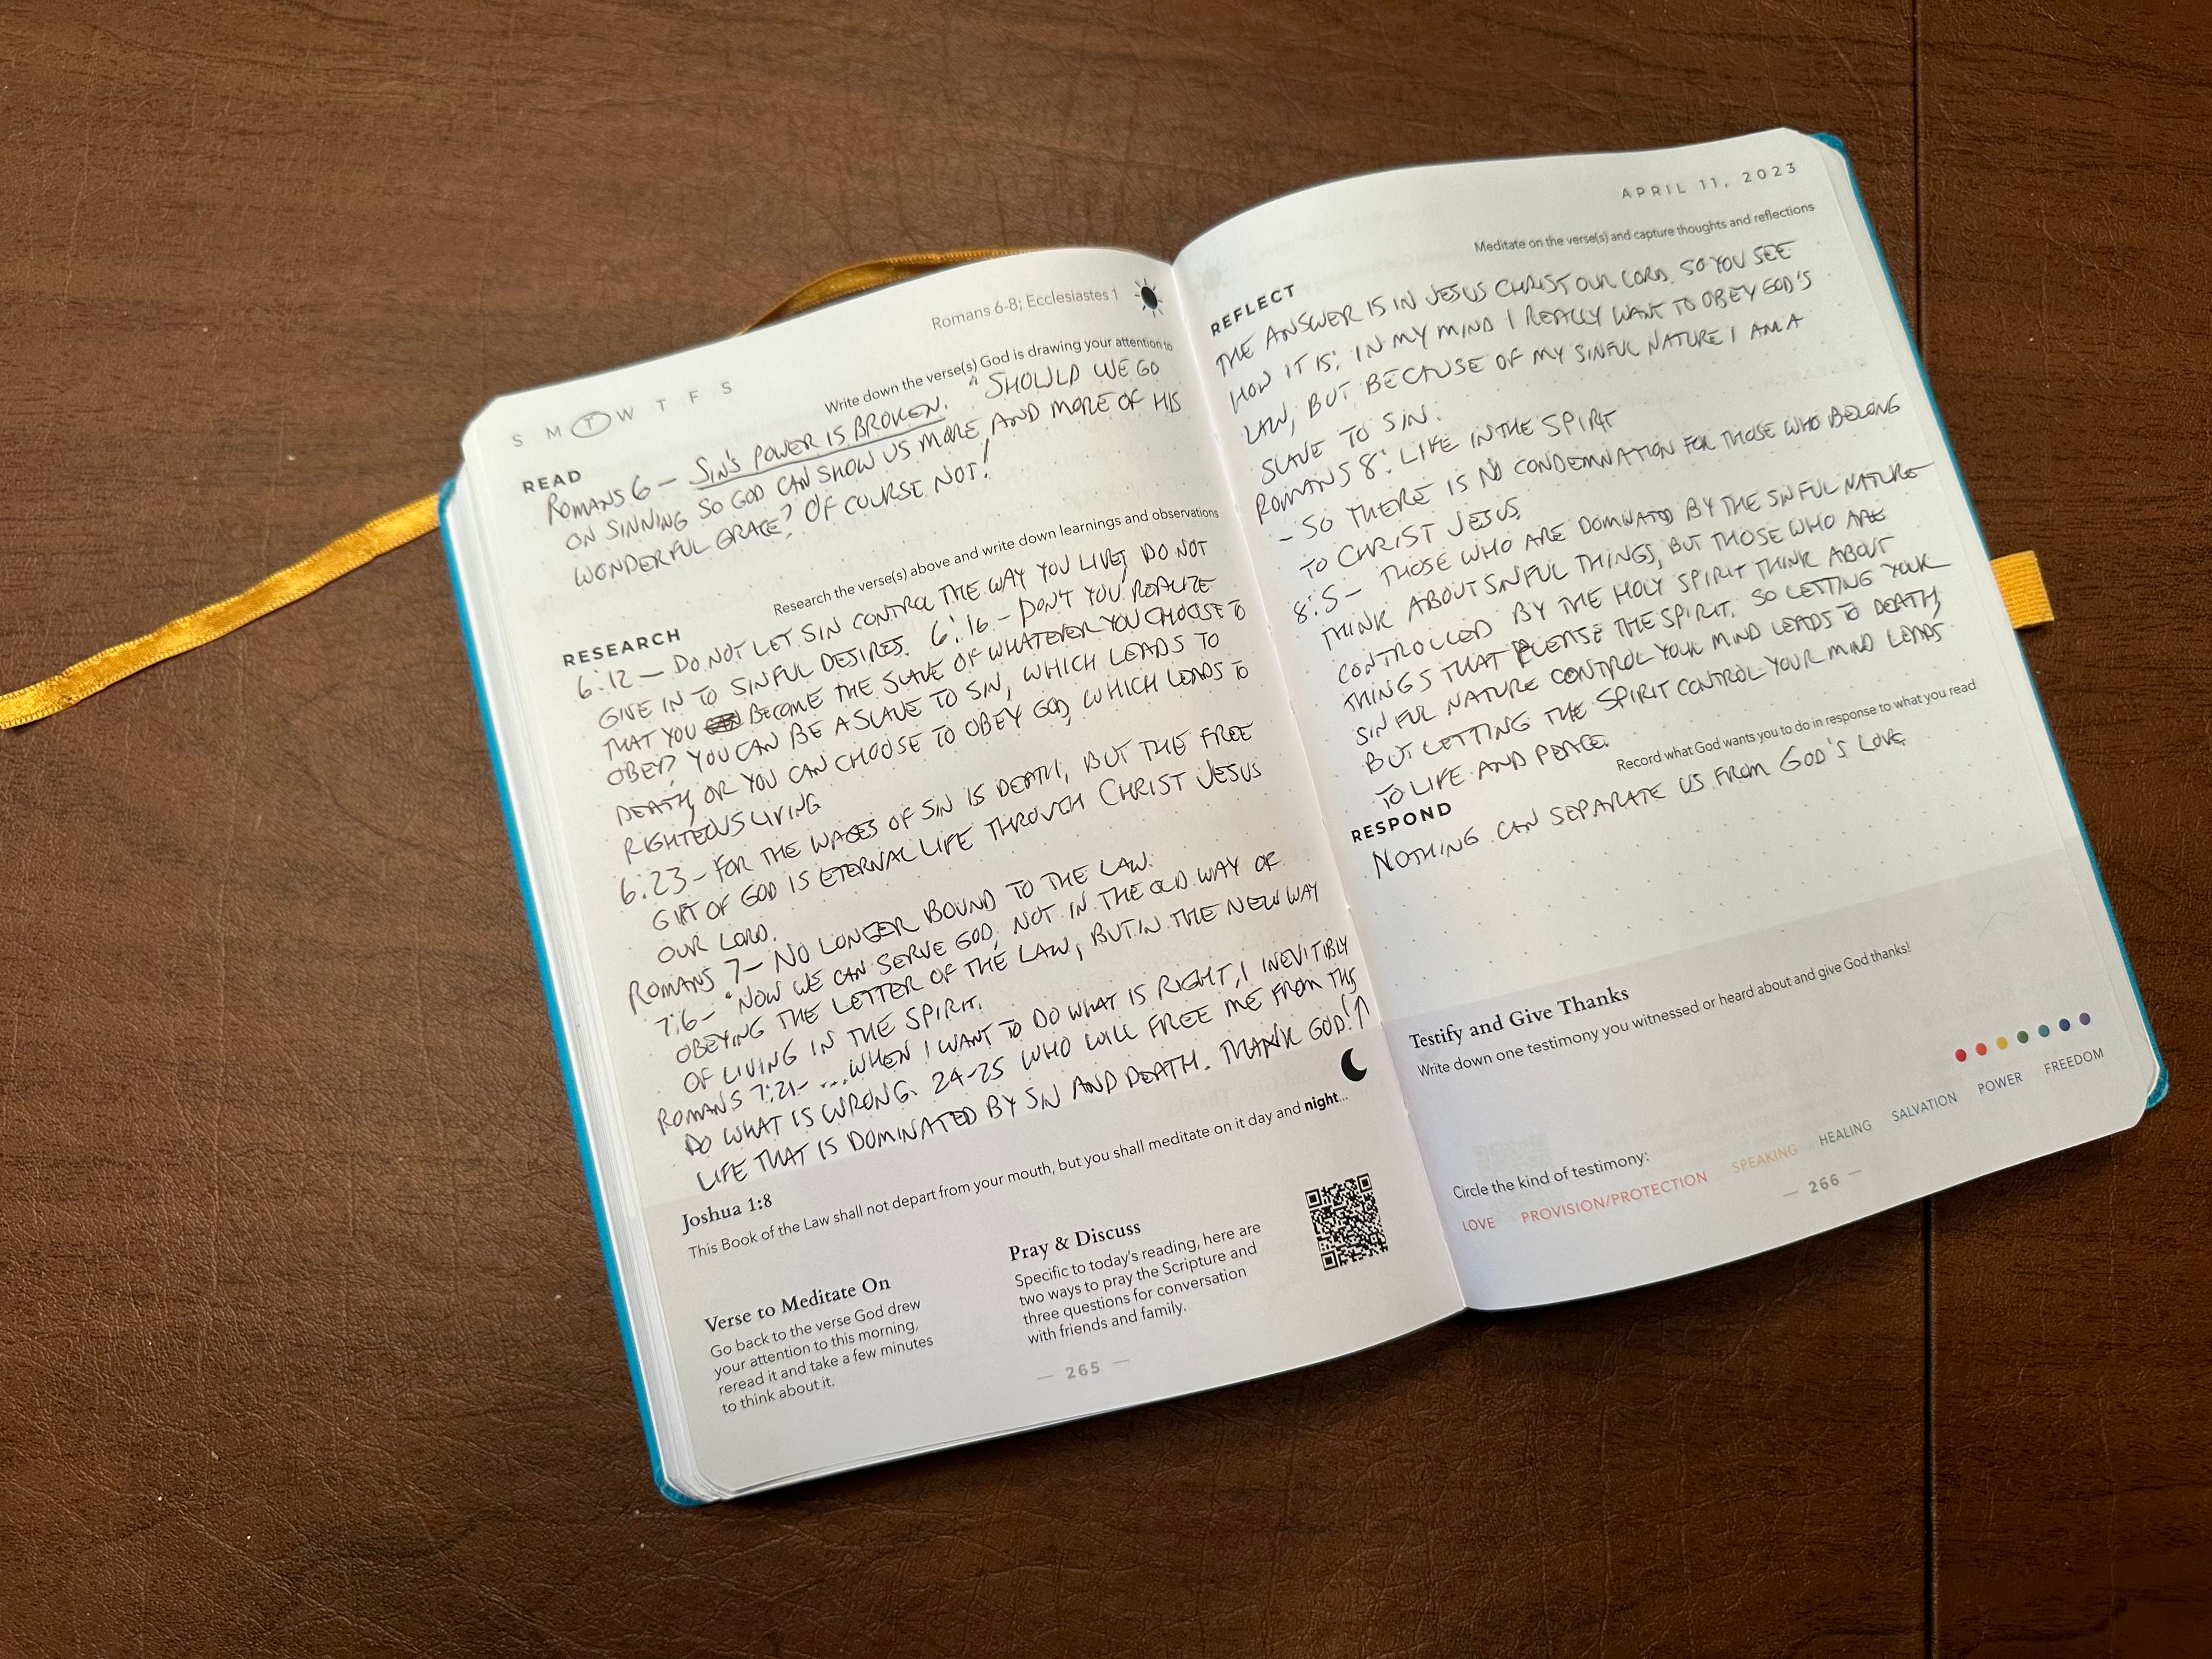 S M T W T F S
Romans 6-8; Ecclesiastes 1
READ
Write down the verse(s) God is drawing your attention to
ROMANS 6 — SIN'S POWER IS BROKEN. "SHOULD WE GO
ON SINNING SO GOD CAN SHOW US MORE AND MORE OF HIS
WONDERFUL GRACE? OF COURSE NOT!
RESEARCH
Research the verse(s) above and write down learnings and observations
6:12 — DO NOT LET SIN CONTROL THE WAY YOU LIVE, DO NOT
GIVE IN TO SINFUL DESIRES. 6:16 — DON'T YOU REALIZE
THAT YOU BECOME THE SLAVE OF WHATEVER YOU CHOOSE TO
OBEY? YOU CAN BE A SLAVE TO SIN, WHICH LEADS TO
DEATH, OR YOU CAN CHOOSE TO OBEY GOD, WHICH LEADS TO
RIGHTEOUS LIVING
6:23 — FOR THE WAGES OF SIN IS DEATH, BUT THE FREE
GIFT OF GOD IS ETERNAL LIFE THROUGH CHRIST JESUS
OUR LORD.
ROMANS 7 — NO LONGER BOUND TO THE LAW.
7:6 — "NOW WE CAN SERVE GOD, NOT IN THE OLD WAY OF
OBEYING THE LETTER OF THE LAW, BUT IN THE NEW WAY
OF LIVING IN THE SPIRIT.
ROMANS 7:21 — ...WHEN I WANT TO DO WHAT IS RIGHT, I INEVITIBLY
DO WHAT IS WRONG. 24-25 WHO WILL FREE ME FROM THIS
LIFE THAT IS DOMINATED BY SIN AND DEATH. THANK GOD! ↑
Joshua 1:8
This Book of the Law shall not depart from your mouth, but you shall meditate on it day and night...
Verse to Meditate On
Go back to the verse God drew
your attention to this morning,
reread it and take a few minutes
to think about it.
Pray & Discuss
Specific to today's reading, here are
two ways to pray the Scripture and
three questions for conversation
with friends and family.
— 265 —
APRIL 11, 2023
REFLECT
Meditate on the verse(s) and capture thoughts and reflections
THE ANSWER IS IN JESUS CHRIST OUR LORD. SO YOU SEE
HOW IT IS: IN MY MIND I REALLY WANT TO OBEY GOD'S
LAW, BUT BECAUSE OF MY SINFUL NATURE I AM A
SLAVE TO SIN.
ROMANS 8: LIFE IN THE SPIRIT
- SO THERE IS NO CONDEMNATION FOR THOSE WHO BELONG
TO CHRIST JESUS.
8:5 — THOSE WHO ARE DOMINATED BY THE SINFUL NATURE
THINK ABOUT SINFUL THINGS, BUT THOSE WHO ARE
CONTROLLED BY THE HOLY SPIRIT THINK ABOUT
THINGS THAT PLEASE THE SPIRIT. SO LETTING YOUR
SINFUL NATURE CONTROL YOUR MIND LEADS TO DEATH,
BUT LETTING THE SPIRIT CONTROL YOUR MIND LEADS
TO LIFE AND PEACE.
RESPOND
Record what God wants you to do in response to what you read
NOTHING CAN SEPARATE US FROM GOD'S LOVE
Testify and Give Thanks
Write down one testimony you witnessed or heard about and give God thanks!
Circle the kind of testimony:
LOVE PROVISION/PROTECTION SPEAKING HEALING SALVATION POWER FREEDOM
— 266 —